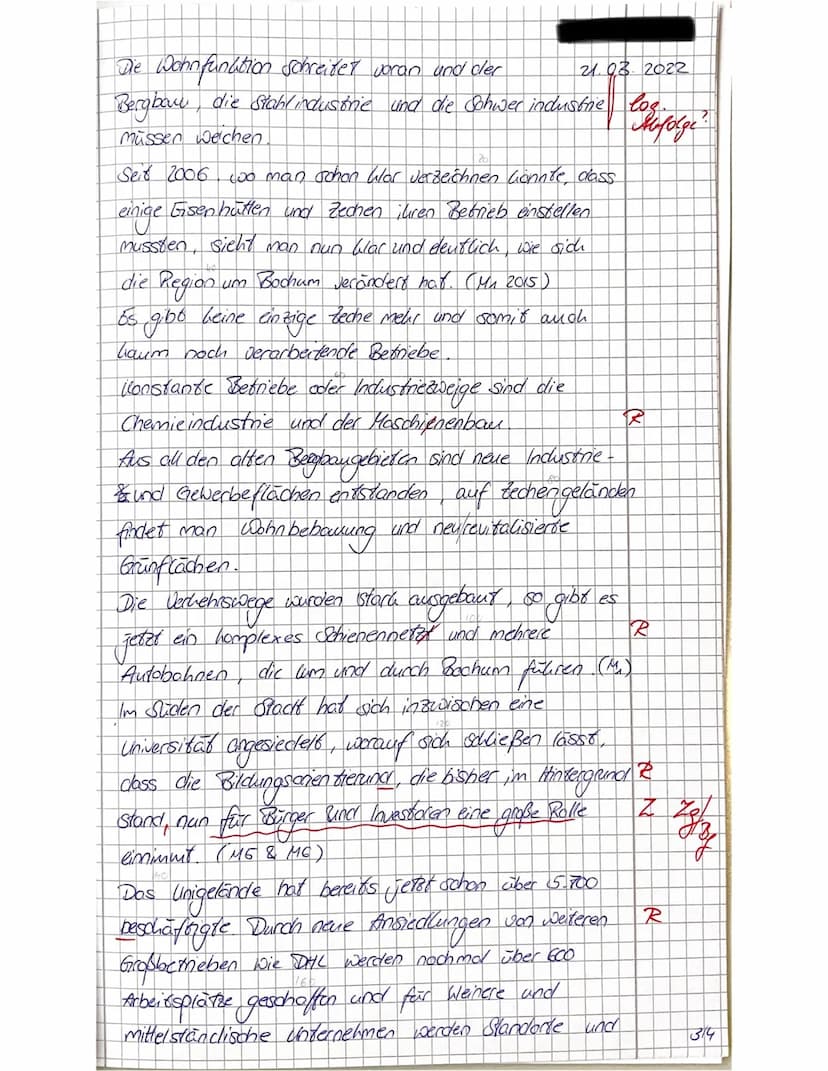 Die Wohnfunktion schreitet voran und der 21.03.2022
Bergbau, die Stahlindustrie und die Schwerindustrie log.
müssen weichen. Abfolge?
Seit 2006, wo man schon klar verzeichnen konnte, dass
einige Eisenhütten und Zechen ihren Betrieb einstellen
mussten, sieht man nun klar und deutlich, wie sich
die Region um Bochum verändert hat. (M1 2015)
Es gibt keine einzige Zeche mehr und somit auch
kaum noch verarbeitende Betriebe.
Konstante Betriebe oder Industriezweige sind die
Chemieindustrie und der Maschienenbau. R
Aus all den alten Bergbaugebieten sind neue Industrie-
& und Gewerbeflächen entstanden, auf Zechengeländen
findet man Wohnbebauung und neu/revitalisierte
Grünflächen.
Die Verkehrswege wurden stark ausgebaut, so gibt es
jetzt ein komplexes Schienennetzt und mehrere R
Autobahnen, die um und durch Bochum führen. (M1)
Im Süden der Stadt hat sich inzwischen eine
120
Universität angesiedelt, worauf sich schließen lässt,
dass die Bildungsorientierund, die bisher im Hintergrund R
stand, nun für Bürger und Investoren eine große Rolle Z Zg/Bg
einnimmt. (M5 & M6)
Das Unigelände hat bereits jetzt schon über 5.700
beschäftigte. Durch neue Ansiedlungen von weiteren R
Großbetrieben wie DHL werden nochmal über 600
160
Arbeitsplätze geschaffen und für kleinere und
mittelständische Unternehmen werden Standorte und 3/4